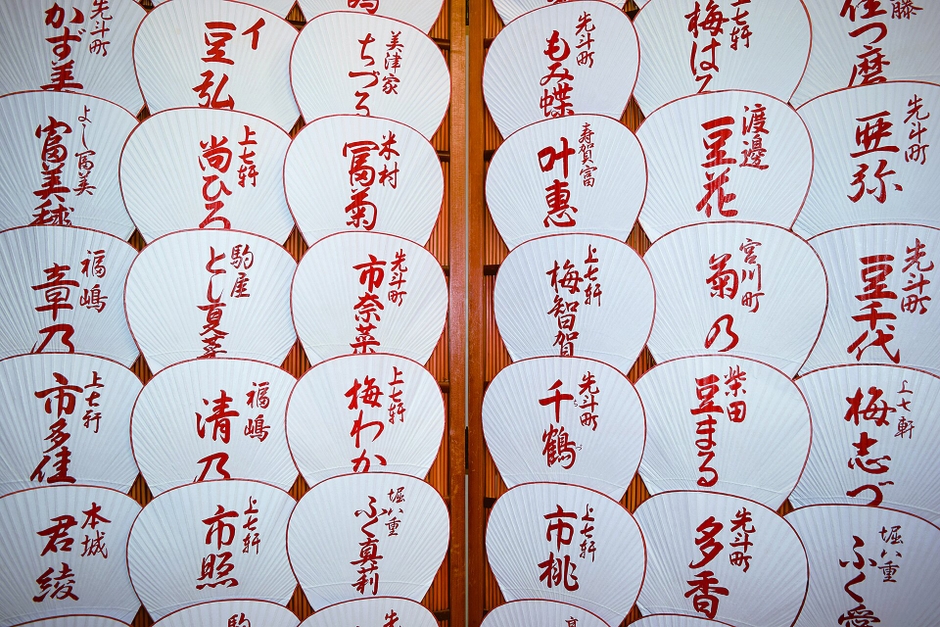 先斗町
かず美
豆弘
美津家
ちづる
先斗町
もみ蝶
上七軒
梅はる
藤
佳つ磨
よし冨美
富美毬
上七軒
尚ひろ
米村
冨菊
寿賀富
叶惠
渡邊
豆花
先斗町
亜弥
福嶋
章乃
駒屋
とし真菜
先斗町
市奈菜
上七軒
梅智賀
宮川町
菊乃
先斗町
豆千代
上七軒
市多佳
福嶋
清乃
上七軒
梅わか
先斗町
千鶴
柴田
豆まる
上七軒
梅志づ
本城
君綾
上七軒
市照
堀八重
ふく真莉
上七軒
市桃
先斗町
多香
堀八重
ふく愛
駒
先